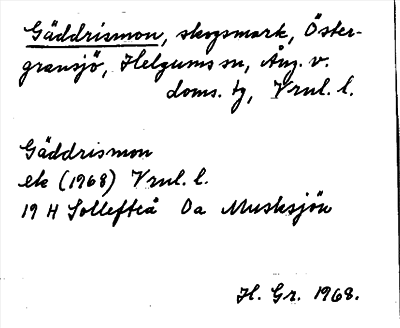 Gäddrismon, skogsmark, Öster-
gransjö, Helgums sn, Ång. v.
doms. tg, Vrnl. l.
Gäddrismon
ek (1968) Vrnl. l.
19 H Sollefteå Oa Musksjön
H. Gr. 1968.